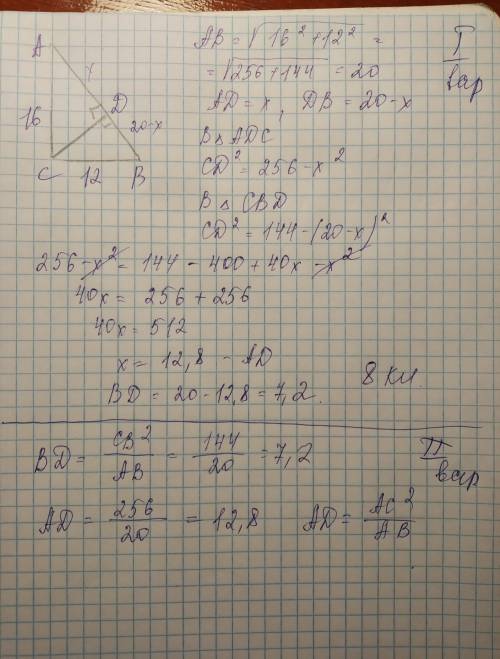 A
x
D
16
20-x
C 12 B
AB = √16² + 12² =
= √256 + 144 = 20
I вар
AD = x, DB = 20 - x
В △ ADC
CD² = 256 - x²
В △ CBD
CD² = 144 - (20 - x)²
256 - x² = 144 - 400 + 40x - x²
40x = 256 + 256
40x = 512
x = 12,8 - AD
BD = 20 - 12,8 = 7,2.
8 кл.
BD = CB²/AB = 144/20 = 7,2
II вар
AD = 256/20 = 12,8 AD = AC²/AB